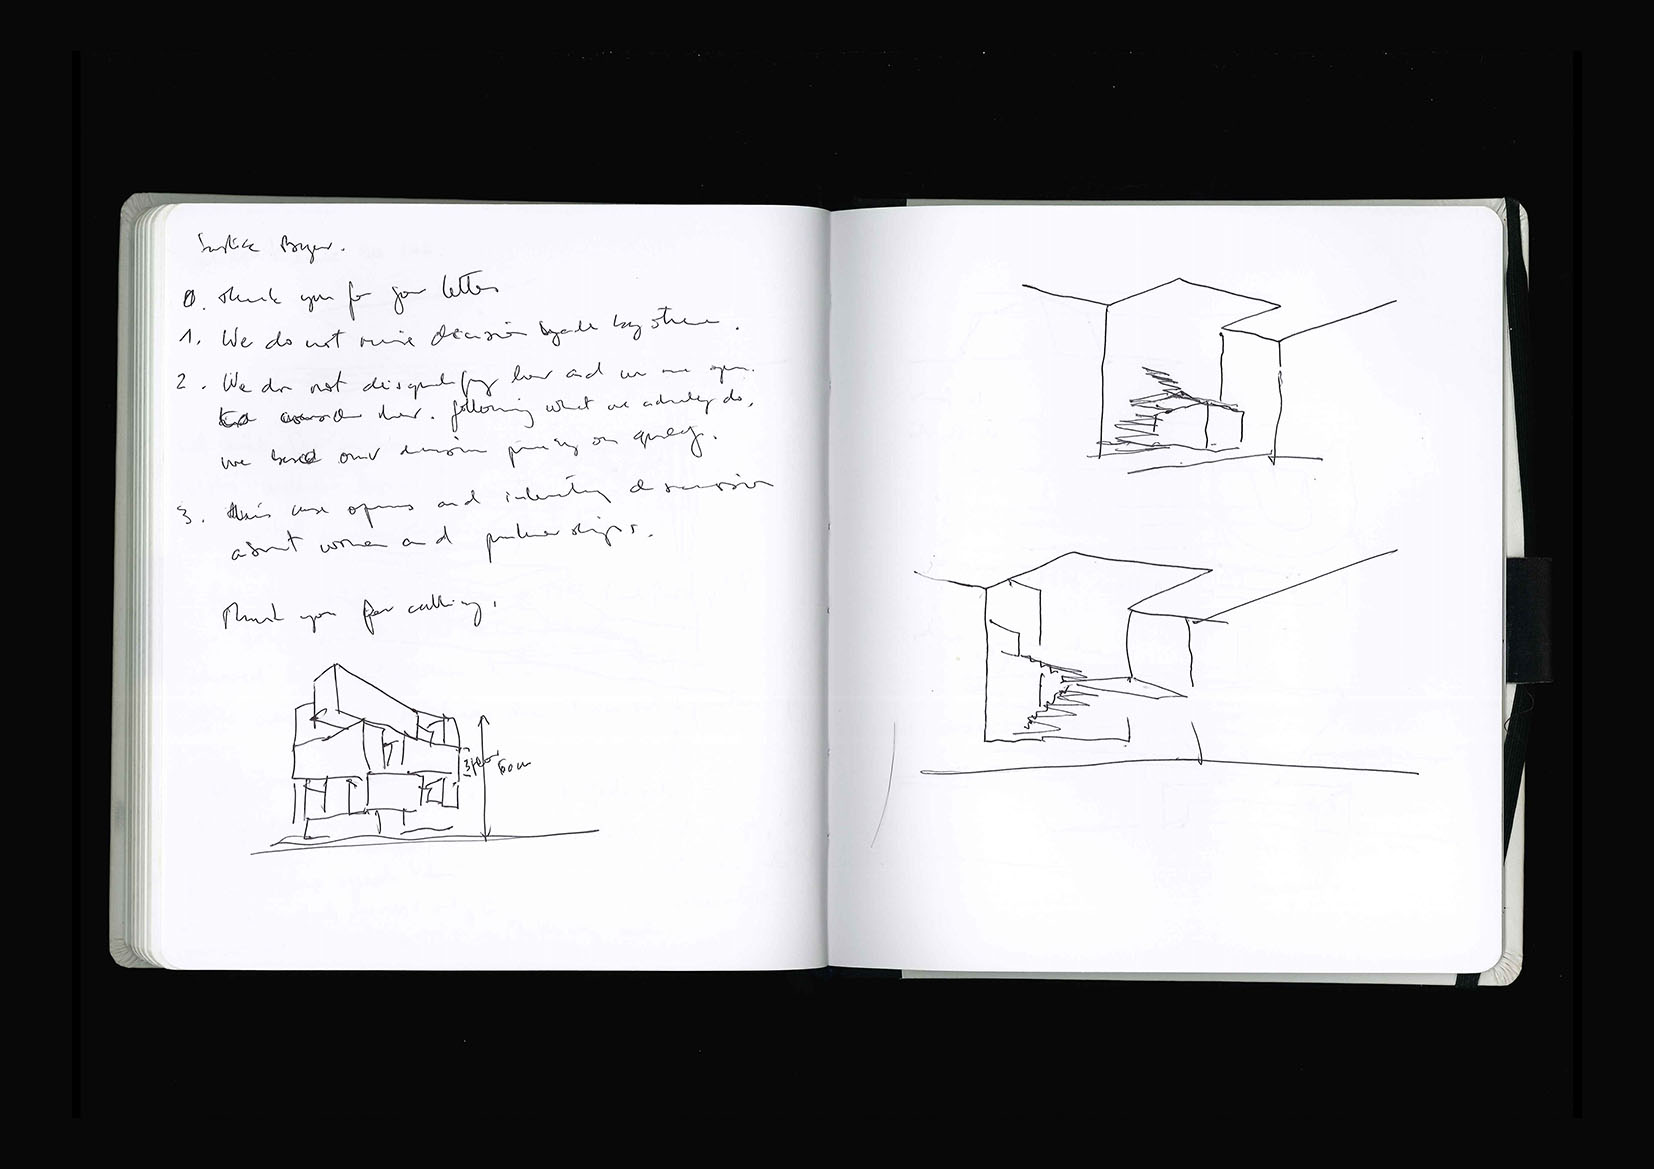 Justice Breyer.
0. Thank you for your letter
1. We do not revise decision made by others.
2. We do not disqualify her and we are open
to award her. following what we actually do,
we based our decision purely on quality.
3. this case opens and interesting discussion
about women and partnerships.
Thank you for calling.
60 cm